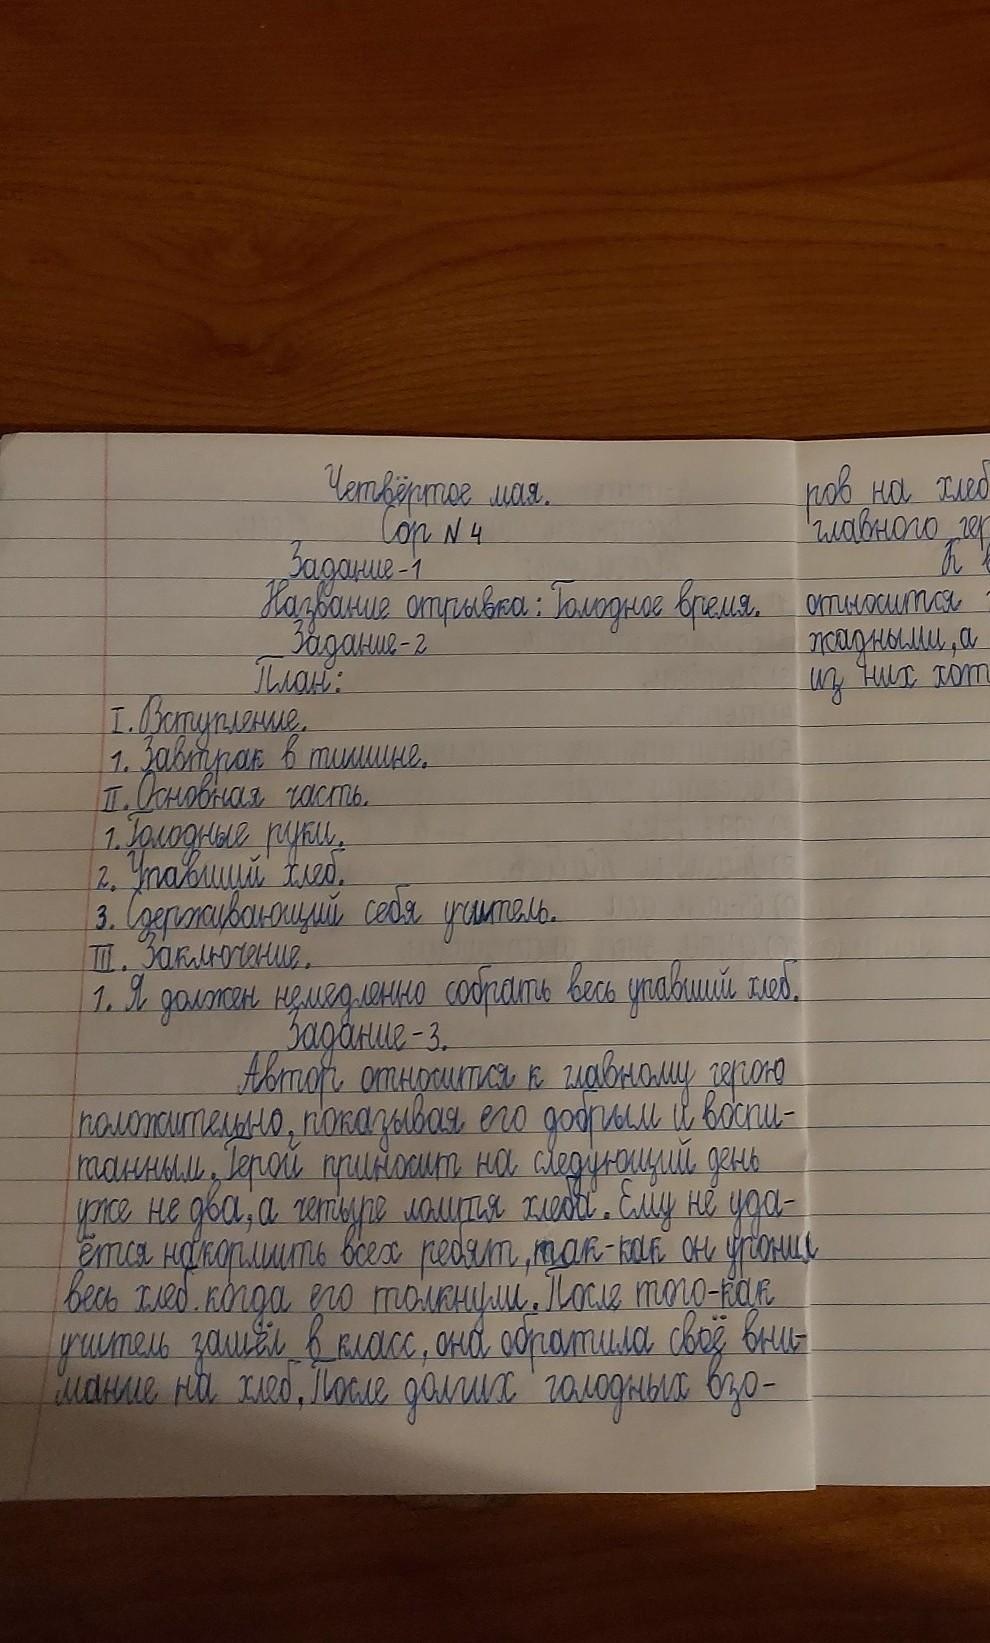 Четвёртое мая.
Сор N 4
Задание-1
Название отрывка: Голодное время.
Задание-2
План:
I. Вступление.
1. Завтрак в тишине.
II. Основная часть.
1. Голодные руки.
2. Упавший хлеб.
3. Сдерживающий себя учитель.
III. Заключение.
1. Я должен немедленно собрать весь упавший хлеб.
Задание-3.
Автор относится к главному герою
положительно, показывая его добрым и воспи-
танным. Герой приносит на следующий день
уже не два, а четыре ломтя хлеба. Ему не уда-
ётся накормить всех ребят, так-как он уронил
весь хлеб. когда его толкнули. После того-как
учитель зашёл в класс, она обратила своё вни-
мание на хлеб. После долгих голодных взо-
ров на хлеб
главного гер
К
относится
жадными, а
из них хот